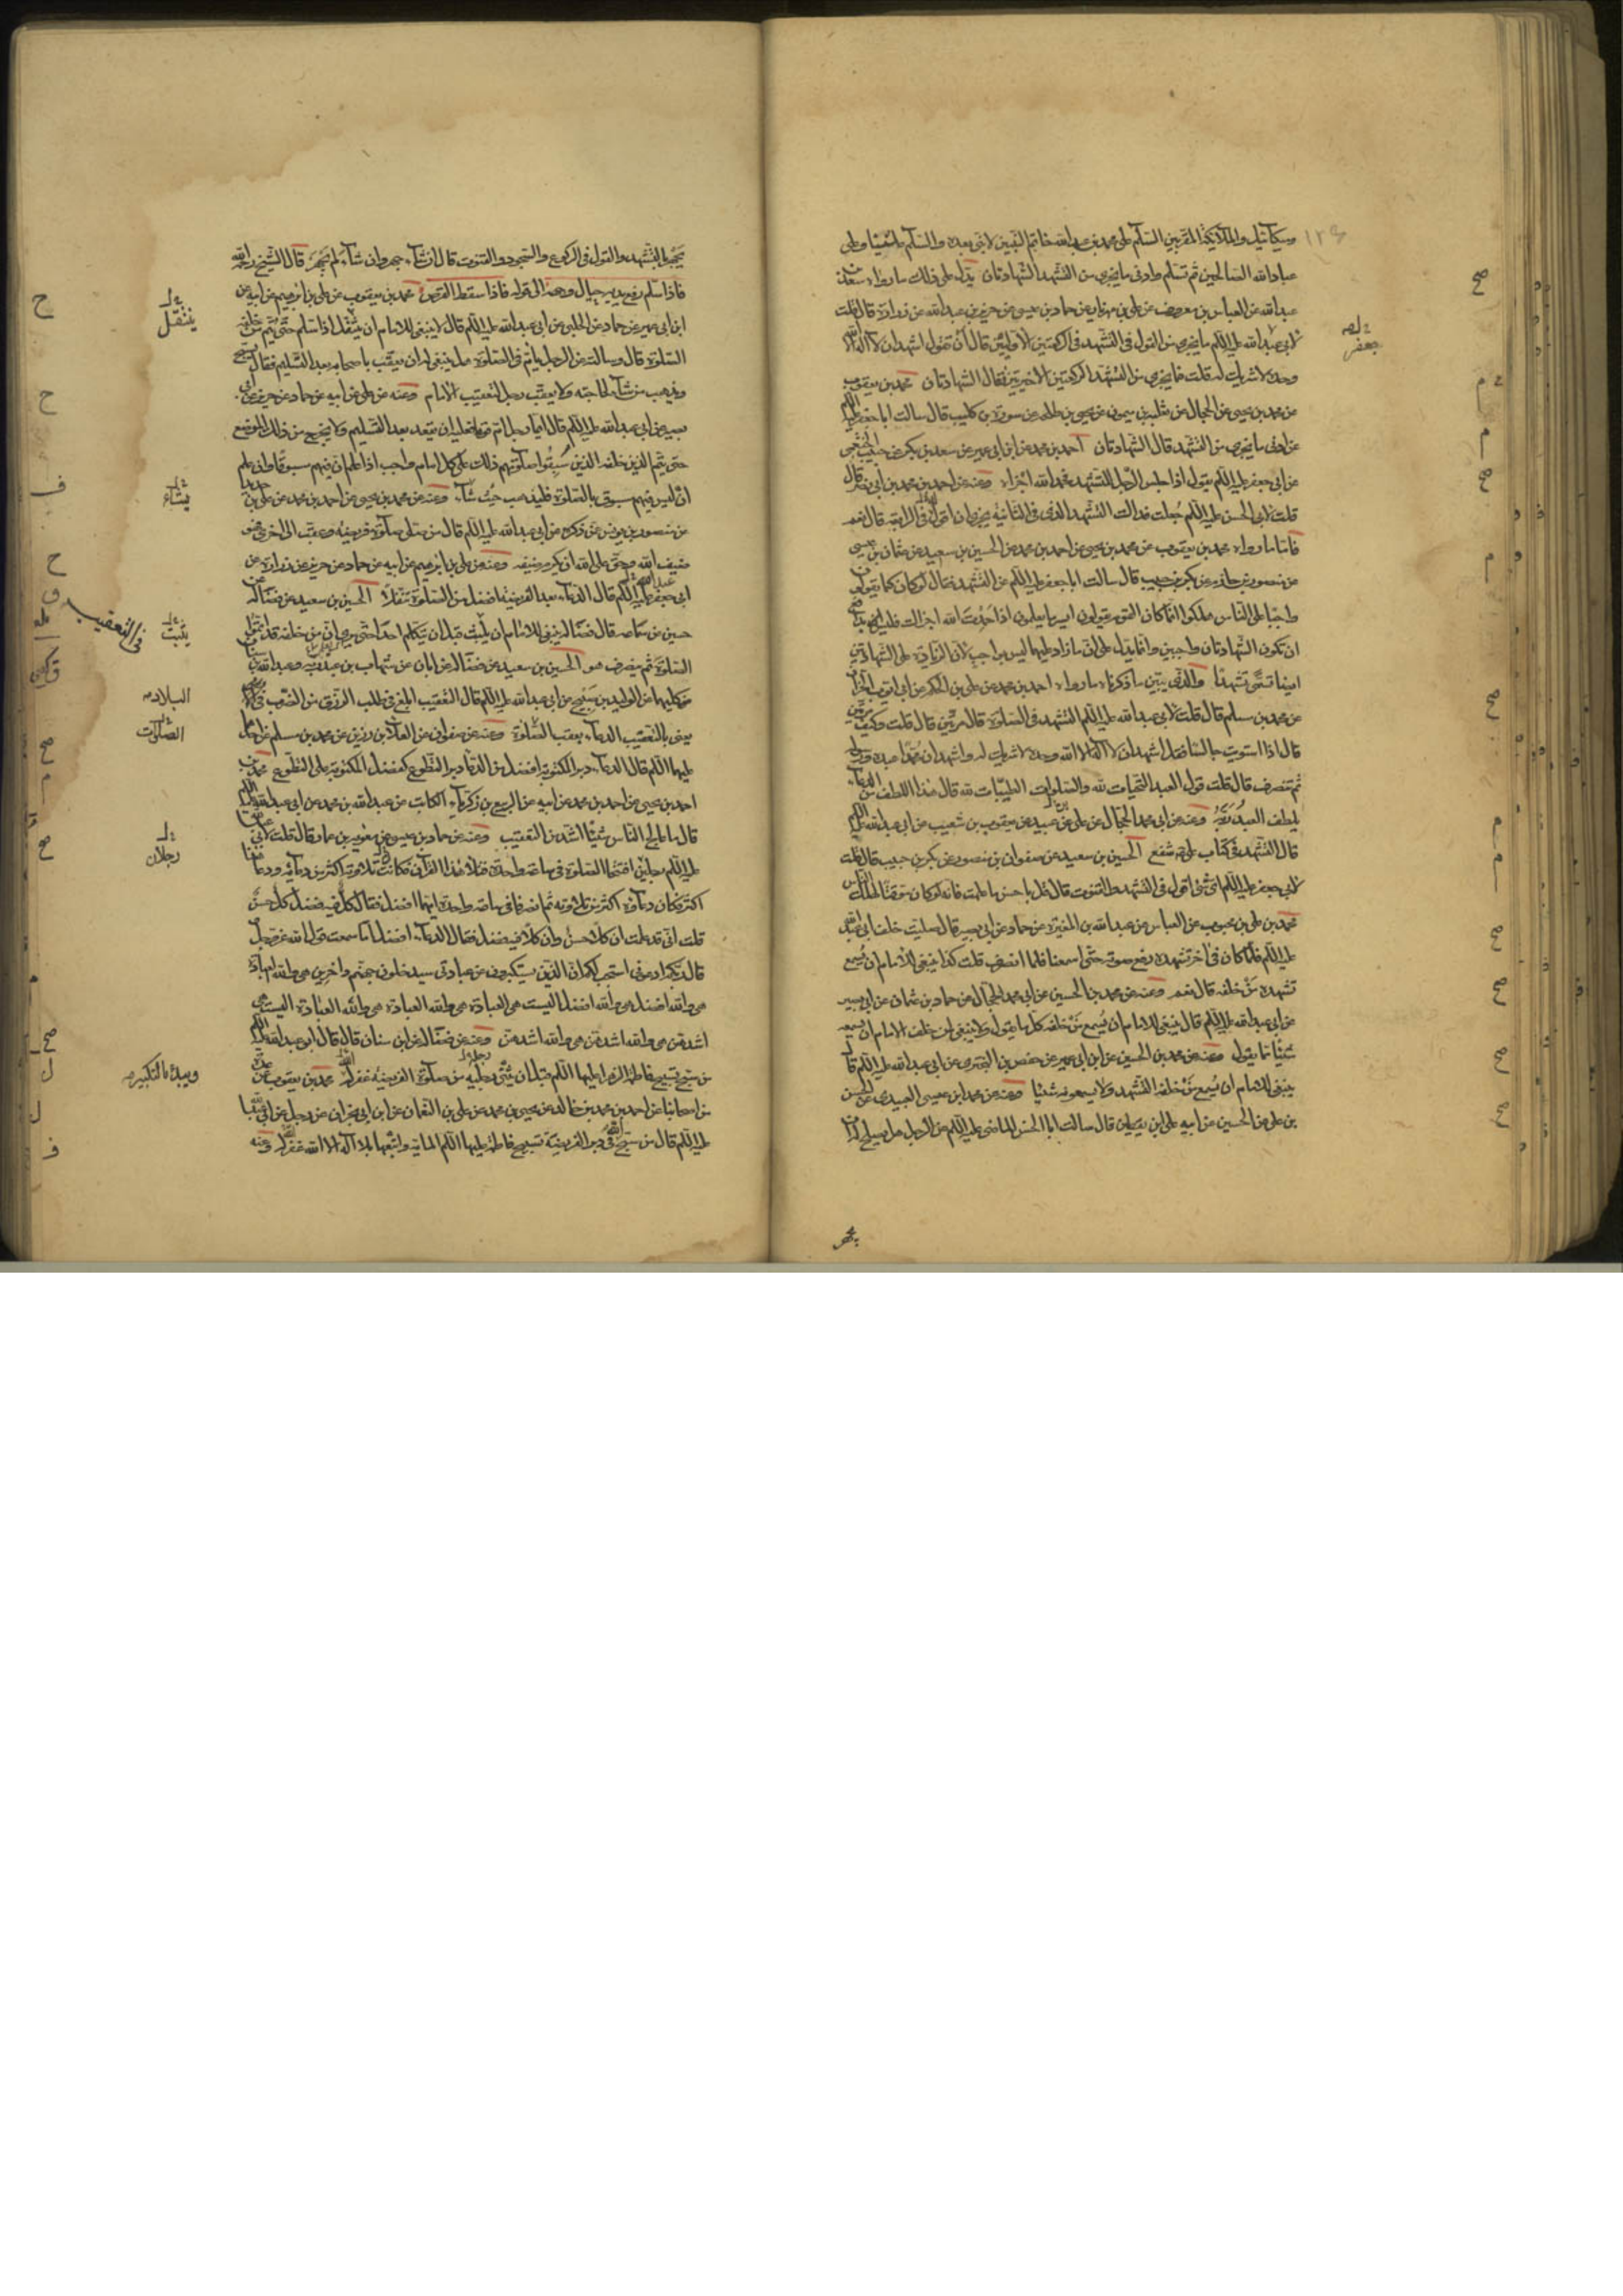 وميكائيل والملائكة المقربين السلام على محمد بن عبد الله خاتم النبيين لا نبي بعده والسلام علينا وعلى
عباد الله الصالحين ثم تسلم وادنى ما يجزي من التشهد الشهادتان يدل على ذلك ما رواه سعد بن
عبد الله عن العباس بن معروف عن علي بن مهزيار عن حماد بن عيسى عن حريز بن عبد الله عن زرارة قال قلت
لابي عبد الله عليه السلم ما يجزي من القول في التشهد في الركعتين الاوليين قال ان تقول اشهد ان لا اله الا الله
وحده لا شريك له قلت فما يجزي من التشهد الركعتين الاخيرتين فقال الشهادتان محمد بن يعقوب
عن محمد بن يحيى عن الحجال عن ثعلبة بن ميمون عن يحيى بن طلحة عن سورة بن كليب قال سالت ابا جعفر عليه السلم
عن ادنى ما يجزي من التشهد قال الشهادتان احمد بن محمد عن ابن ابي عمير عن سعد بن بكر عن حبيب الخثعمي
عن ابي جعفر عليه السلم يقول اذا جلس الرجل للتشهد فحمد الله اجزاه وعنه عن احمد بن محمد بن ابي نصر قال
قلت لابي الحسن عليه السلم جعلت فداك التشهد الذي في الثانية يجزي ان اقول في الرابعة قال نعم
فاما ما رواه محمد بن يعقوب عن محمد بن يحيى عن احمد بن محمد عن الحسين بن سعيد عن عثمان بن عيسى
عن منصور بن حازم عن بكر بن حبيب قال سالت ابا جعفر عليه السلم عن التشهد فقال لو كان كما يقولون
واجبا على الناس هلكوا انما كان القوم يقولون ايسر ما يعلمون اذا حمدت الله اجزاك فليس
ان تكون الشهادتان واجبين وانما يدل على ان ما زاد عليهما ليس بواجب لان الزيادة على الشهادتين
ايضا تسمى تشهدا والذي يبين ما ذكرناه ما رواه احمد بن محمد عن علي بن الحكم عن ابي ايوب الخزاز
عن محمد بن مسلم قال قلت لابي عبد الله عليه السلم التشهد في الصلوة قال مرتين قال قلت وكيف مرتين
قال اذا استويت جالسا فقل اشهد ان لا اله الا الله وحده لا شريك له واشهد ان محمدا عبده ورسوله
ثم تنصرف قال قلت قول العبد التحيات لله والصلوات الطيبات لله قال هذا اللطف من الدعاء
يلطف العبد ربه وعنه عن ابي محمد الحجال عن علي بن عبيد عن يعقوب بن شعيب عن ابي عبد الله عليه السلم
قال التشهد في كتاب علي شفع الحسين بن سعيد عن صفوان بن منصور عن بكر بن حبيب قال قلت
لابي جعفر عليه السلم اي شي اقول في التشهد والقنوت قال قل باحسن ما علمت فانه لو كان موقتا لهلك الناس
محمد بن علي بن محبوب عن العباس عن عبد الله بن المغيرة عن حماد عن ابي بصير قال صليت خلف ابي عبد الله
عليه السلم فلما كان في اخر تشهده رفع صوته حتى اسمعنا فلما انصرف قلت كذا ينبغي للامام ان يسمع
تشهده من خلفه قال نعم وعنه عن محمد بن الحسين عن ابي محمد الحجال عن حماد بن عثمان عن ابي بصير
عن ابي عبد الله عليه السلم قال ينبغي للامام ان يسمع من خلفه كل ما يقول ولا ينبغي لمن خلف الامام ان يسمعه
شيئا مما يقول وعنه عن محمد بن الحسين عن ابن ابي عمير عن حفص بن البختري عن ابي عبد الله عليه السلم قال
ينبغي للامام ان يسمع من خلفه التشهد ولا يسمعونه شيئا وعنه عن محمد بن عيسى العبيدي عن الحسن
بن علي عن الحسين عن ابيه علي بن يقطين قال سالت ابا الحسن الماضي عليه السلم عن الرجل هل يصلح له ان
يجهر
جعفر
يجهر بالتشهد والقول في الركوع والسجود والقنوت قال ان شاء جهر وان شاء لم يجهر قال الشيخ رحمه الله
فاذا سلم رفع يديه حيال وجهه الى قوله فاذا سقط القرص محمد بن يعقوب عن علي بن ابرهيم عن ابيه عن
ابن ابي عمير عن حماد عن الحلبي عن ابي عبد الله عليه السلم قال لا ينبغي للامام ان يتنفل اذا سلم حتى يتم من خلفه
الصلوة قال وسالته عن الرجل يأتم في الصلوة هل ينبغي له ان يعقب باصحابه بعد التسليم فقال يسبح
ويذهب من شاء لحاجته ولا يعقب رجل لتعقيب الامام وعنه عن علي عن ابيه عن حماد عن حريز عن ابي
بصير عن ابي عبد الله عليه السلم قال ايما رجل ام قوما فعليه ان يقعد بعد التسليم ولا يخرج من ذلك الموضع
حتى يتم الذين خلفه الذين سبقوا صلوتهم ذلك على كل امام واجب اذا علم ان فيهم مسبوقا وان علم
ان ليس فيهم مسبوق بالصلوة فليذهب حيث شاء وعنه عن محمد بن يحيى عن احمد بن محمد عن علي بن حديد
عن منصور بن يونس عمن ذكره عن ابي عبد الله عليه السلم قال من صلى صلوة فريضة وعقب الى اخرى فهو
ضيف الله وحق على الله ان يكرم ضيفه وعنه عن علي بن ابرهيم عن ابيه عن حماد عن حريز عن زرارة عن
ابي جعفر عليه السلم قال الدعاء بعد الفريضة افضل من الصلوة تنفلا الحسين بن سعيد عن فضالة عن
حسين عن سماعة قال ينبغي للامام ان يلبث قبل ان يتكلم احدا حتى يرى ان من خلفه قد اتموا
الصلوة ثم ينصرف هو الحسين بن سعيد عن فضالة عن ابان عن شهاب بن عبد ربه وعبد الله بن سنان
كليهما عن الوليد بن صبيح عن ابي عبد الله عليه السلم قال التعقيب ابلغ في طلب الرزق من الضرب في
يعني بالتعقيب الدعاء بعقب الصلوة وعنه عن صفوان عن العلاء بن رزين عن محمد بن مسلم عن احدهما
عليهما السلم قال الدعاء دبر المكتوبة افضل من الدعاء دبر التطوع كفضل المكتوبة على التطوع محمد بن
احمد بن يحيى عن احمد بن محمد عن ابيه عن الربيع بن زكرياء الكاتب عن عبد الله بن محمد عن ابي عبد الله عليه السلم
قال ما عالج الناس شيئا اشد من التعقيب وعنه عن حماد بن عيسى عن معوية بن عمار قال قلت لابي عبد الله
عليه السلم رجلين افتتحا الصلوة في ساعة واحدة فتلا هذا القرآن فكانت تلاوته اكثر من دعائه ودعا هذا
اكثر فكان دعاؤه اكثر من تلاوته ثم انصرفا في ساعة واحدة ايهما افضل فقال كل فيه فضل كل حسن
قلت اني قد علمت ان كلا حسن وان كلا فيه فضل فقال الدعاء افضل اما سمعت قول الله عز وجل
وقال ربكم ادعوني استجب لكم ان الذين يستكبرون عن عبادتي سيدخلون جهنم داخرين هي والله العبادة
هي والله افضل هي والله افضل اليست هي العبادة هي والله العبادة هي والله العبادة اليست هي
اشدهن هي والله اشدهن هي والله اشدهن وعنه عن فضالة عن ابن سنان قال قال ابو عبد الله عليه السلم
من سبح تسبيح فاطمة الزهراء عليها السلم قبل ان يثني رجليه من صلوة الفريضة غفر الله له محمد بن يعقوب عن عدة
من اصحابنا عن احمد بن محمد بن خالد عن يحيى بن محمد عن علي بن النعمان عن ابن ابي نجران عن رجل عن ابي عبد الله
عليه السلم قال من سبح الله في دبر الفريضة تسبيح فاطمة عليها السلم المائة واتبعها بلا اله الا الله غفر الله له وعنه
يتنفل
يشاء
في التعقيب
يلبث
البلاد
الصلوات
رجلان
ويبدأ بالتكبير